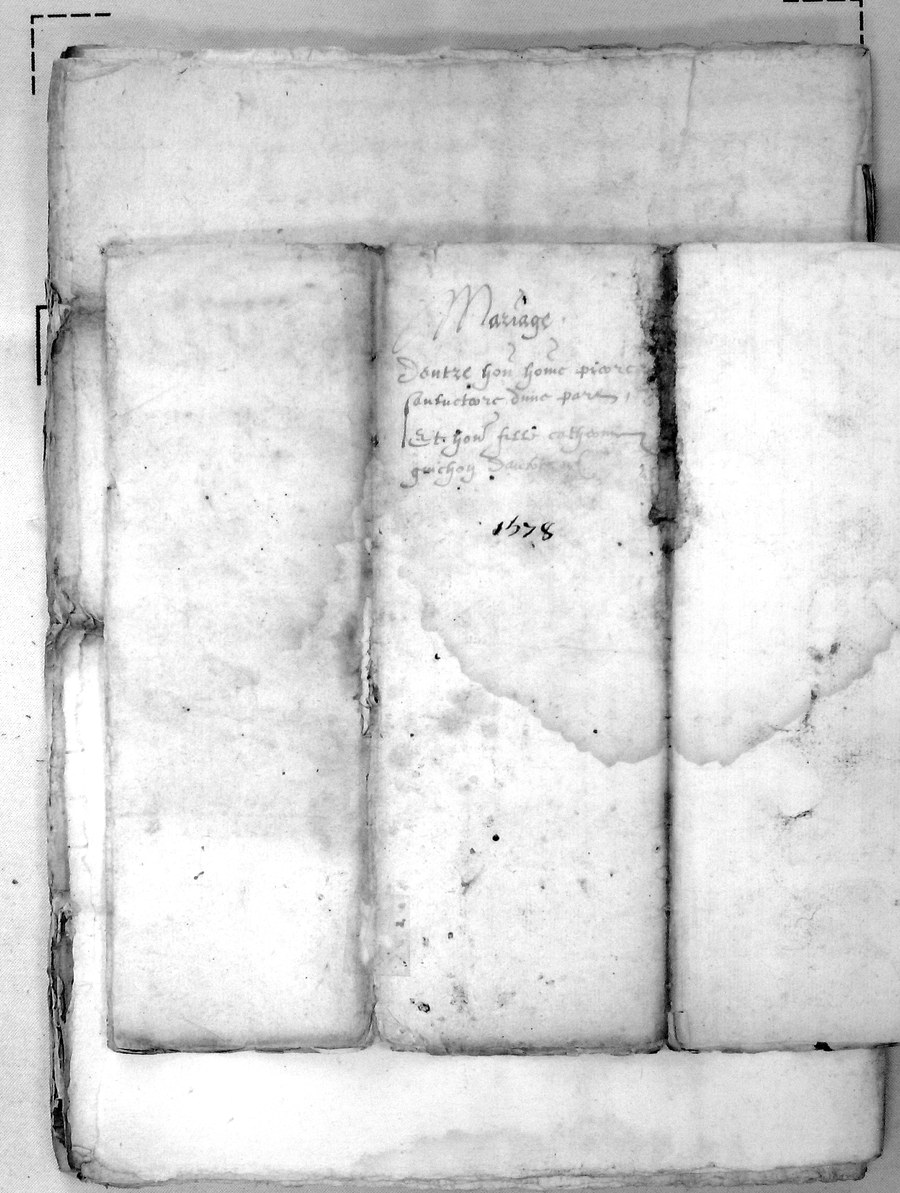 Mariage
Dentre hon home pierre
dune part,
Et hon fille catherine
guichon dautre
1578